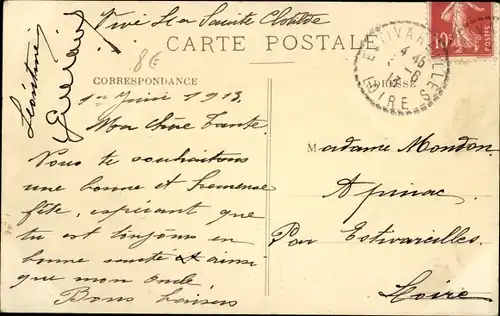 Vive la Sainte Clotilde
86
CARTE POSTALE
CORRESPONDANCE
ADRESSE
ESTIVAREILLES
LOIRE
10
POSTES
Léontine
1er Juin 1913.
Ma Chère Tante.
Nous te souhaitons
une bonne et heureuse
fête, espérant que
tu est toujours en
bonne santé et ainsi
que mon oncle.
Bons baisers
Madame Mondon.
Apinac.
Par Estivareilles.
Loire.